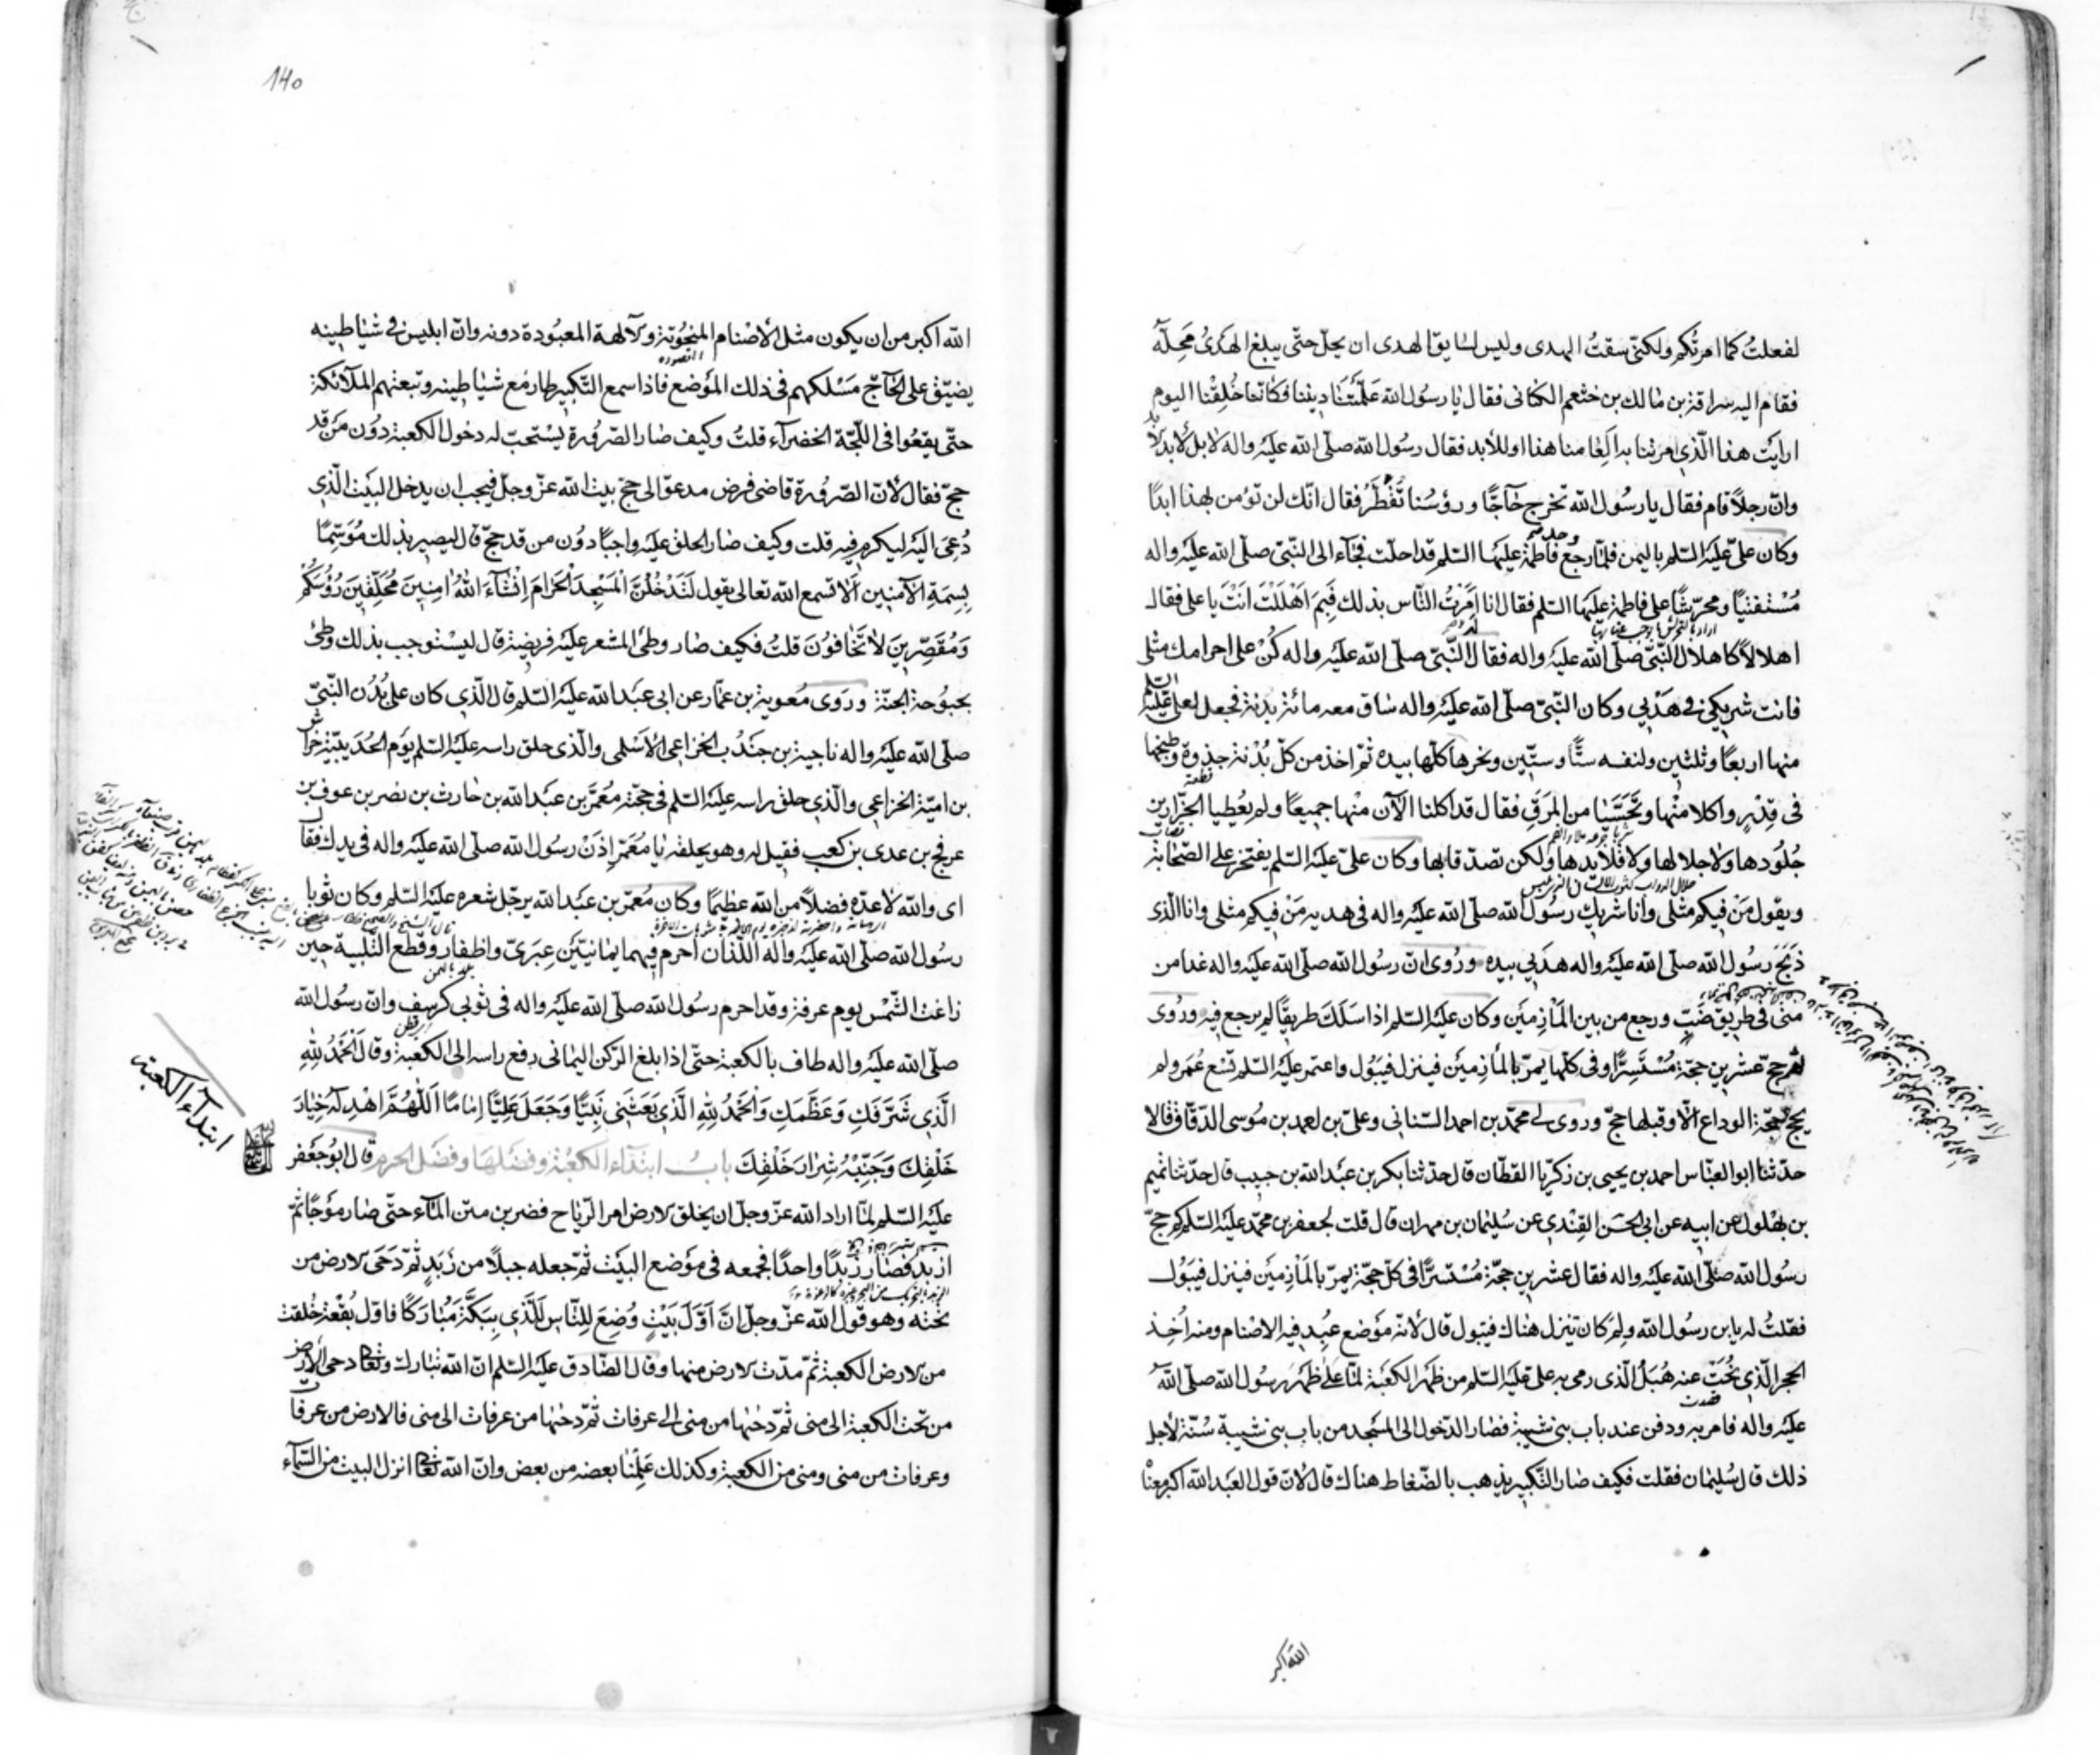 لفعلتُ كما امرتُكم ولكنّى سقتُ الهدى وليس لسايق الهدى ان يحلّ حتّى يبلغ الهَدىُ مَحِلَّه
فقام اليه سراقة بن مالك بن خثعم الكنانى فقال يا رسُول الله عَلّمتنا ديننا فكانّما خُلِقْنا اليوم
ارايت هذا الّذى امرتنا به اَلِعامنا هذا او للأبد فقال رسُول الله صلّى الله عليه واله لا بل لأبد الأبد
وانّ رجلاً قام فقال يا رسُول الله نخرج حَاجًّا ورؤسُنا تَقْطُرُ فقال انّك لن تؤمن بهذا ابدًا
وكان علىّ عليه السّلم باليمن فلمّا رجع وجد فاطمة عليها السّلم قد احلّت فجاء الى النّبىّ صلّى الله عليه واله
مُسْتفتيًا ومحرّشًا على فاطمة عليها السّلم فقال انا اَمَرْتُ النّاس بذلك فَبِمَ اَهْلَلْتَ اَنْتَ يا على فقال
اهلالاً كاهلال النّبىّ صلّى الله عليه واله فقال النّبىّ صلّى الله عليه واله كُنْ على احرامك مثلى
فانت شريكى فى هَدْيى وكان النّبىّ صلّى الله عليه واله ساق معه مائة بدنة فجعل لعلى عليه السّلم
منها اربعًا وثلثين ولنفسه ستًّا وستّين ونحرها كلّها بيده ثمّ اخذ من كلّ بُدْنة جذوة وطبخها
فى قِدْرٍ واكلا منْها وتَحَسَّيَا من المَرَقِ فقال قد اكلنا الآن منْها جميعًا ولم يُعطيا الجزّارين
جُلُودها ولا جلالها ولا قلايدها ولكن تصدّقا بها وكان علىّ عليه السّلم يفتخر على الصّحابة
ويقول مَنْ فيكم مثلى وانا شريك رسُول الله صلّى الله عليه واله فى هديه مَنْ فيكم مثلى وانا الّذى
ذَبَحَ رسُول الله صلّى الله عليه واله هَدْيى بيده ورُوى انّ رسُول الله صلّى الله عليه واله غدا من
منى فى طريق ضَبّ ورجع من بين المَأْزِمَيْن وكان عليه السّلم اذا سَلَكَ طريقًا لم يرجع فيه ورُوى
انّه حجّ عشرين حجّة مُسْتَسِرًّا وفى كلّها يمرّ بالمأزِمَيْن فينزل فيبُول واعتمر عليه السّلم تسْع عُمَر ولم
يحجّ حجّة الوداع الّا وقبلها حجّ وروى لى محمّد بن احمد السّنانى وعلىّ بن احمد بن مُوسى الدّقّاق قالا
حدّثنا ابو العبّاس احمد بن يحيى بن زكريّا القطّان قال حدّثنا بكر بن عبد الله بن حبيب قال حدّثنا تميم
بن بهْلُول عن ابيه عن ابى الحسَن القِنْدى عن سُليمان بن مهران قال قلت لجعفر بن محمّد عليه السّلم كم حجّ
رسُول الله صلّى الله عليه واله فقال عشرين حجّة مُسْتسرًّا فى كلّ حجّة يمرّ بالمَأزمَيْن فينزل فيبُول
فقلتُ له يا بن رسُول الله ولِمَ كان ينزل هناك فيبول قال لأنّه مَوْضع عُبِد فيه الاصنام ومنه اُخِذ
الحجر الّذى نُحِتَ عنه هُبَلُ الّذى رمى به علىّ عليه السّلم من ظَهْر الكعْبة لمّا عَلَا ظَهْر رسُول الله صلّى الله
عليه واله فامر به ودفن عند باب بنى شيبة فصار الدّخول الى المسْجد من باب بنى شيبة سُنّة لأجل
ذلك قال سُليمان فقلت فكيف صار التّكبير يذهب بالضّغاط هناك قال لأنّ قول العبد الله اكبر معناه
الله اكبر
140
الله اكبر من ان يكون مثل الأصْنام المنحُوتة والآلهة المعبُودة دونه وانّ ابليس فى شياطينه
يضيّق على الحاجّ مَسْلكهم فى ذلك المَوْضع فاذا سمع التّكبير طار مَع شياطينه وتبعتهم الملآئكة
حتّى يقعُوا فى اللّجّة الخضرآء قلتُ وكيف صار الصّرُورة يسْتحبّ له دخُول الكعبة دُون مَنْ قد
حجّ فقال لأنّ الصّرُورة قاضى فرض مدعوّ الى حجّ بيت الله عزّ وجلّ فيجب ان يدخل البيْت الّذى
دُعِىَ اليْه ليكرم فيه قلت وكيف صار الحلق عليه واجبًا دوُن من قد حجّ قال ليصير بذلك مُوَسَّمًا
بِسِمَةِ الآمنين اَلا تسمع الله تعالى يقول لَتَدْخُلُنَّ الْمَسْجِدَ الْحَرَامَ اِنْ شَآءَ اللهُ امِنِينَ مُحَلِّقِينَ رُؤُسَكُمْ
وَمُقَصِّرِينَ لَا تَخَافُونَ قلتُ فكيف صار وطىُ المشعر عليه فريضة قال ليسْتوجب بذلك وطىُ
بحبُوحة الجنّة ورَوى مُعوية بن عمّار عن ابى عبد الله عليه السّلم قال الّذى كان على بُدُن النّبىّ
صلّى الله عليه واله ناجية بن جُنْدُب الخزاعى الأسْلمى والّذى حلق راسه عليه السّلم يَوْم الحُدَيبيّة خراش
بن اميّة الخزاعى والّذى حلق راسه عليه السّلم فى حجّته مُعَمّر بن عبد الله بن حارث بن نصر بن عوف بن
عويج بن عدى بن كعب فقيل له وهو يحلقه يا مُعَمّر اِذنْ رسُول الله صلّى الله عليه واله فى يدك فقال
اى والله لاعدّه فضلاً من الله عظيمًا وكان مُعمّر بن عبد الله يرجّل شعره عليه السّلم وكان ثوبا
رسُول الله صلّى الله عليه واله اللّذان احرم فيهما يمانيّيْن عِبَرىّ واظفار وقطع التّلبية حين
زاغت الشّمْس يوم عرفة وقد احرم رسُول الله صلّى الله عليه واله فى ثوبى كرسف وانّ رسُول الله
صلّى الله عليه واله طاف بالكعبة حتّى اذا بلغ الرّكن اليمانى رفع راسه الى الكعْبة وقال اَلْحَمْدُ لِلّهِ
الَّذِى شَرَّفَكِ وَعَظَّمَكِ وَالْحَمْدُ لِلّهِ الَّذِى بَعَثَنِى نَبِيًّا وَجَعَلَ عَلِيًّا اِمَامًا اَللّهُمَّ اهْدِ لَهُ خِيَارَ
خَلْقِكَ وَجَنِّبْهُ شِرَارَ خَلْقِكَ بابُ ابتدَآء الكعْبَة وفضْلهَا وفضْل الحرم قال ابُو جَعْفر
ابتدآء الكعبة
عليه السّلم لمّا اراد الله عزّ وجلّ ان يخلق الارض امر الرّياح فضربن متن المآء حتّى صار مَوْجًا ثمّ
ازبد فصار زَبَدًا واحدًا فجمعه فى مَوْضع البيْت ثمّ جعله جبلاً من زَبَدٍ ثمّ دَحَى الارض من
تحته وهو قول الله عزّ وجلّ انَّ اَوَّلَ بَيْتٍ وُضِعَ لِلنَّاسِ لَلَّذِى بِبَكَّةَ مُبَارَكًا فاوّل بُقْعة خُلقت
من الارض الكعبة ثمّ مدّت الارض منها وقال الصّادق عليه السّلم انّ الله تبارك وتعالى دحى الأرض
من تحْت الكعبة الى منى ثمّ دحٰيها من منى الى عرفات ثمّ دحٰيها من عرفات الى منى فالارض من عرفات
وعرفات من منى ومنى من الكعبة وكذلك عَلِمْنَا بعضه من بعض وانّ الله تعالى انزل البيت من السّمآء